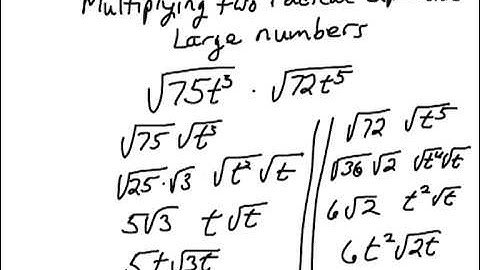 Multiplying two radical
Large numbers
√75t³ · √72t⁵
√75 √t³
√25·√3 √t² √t
5√3 t√t
5t√3t
√72 √t⁵
√36 √2 √t⁴ √t
6√2 t²√t
6t²√2t